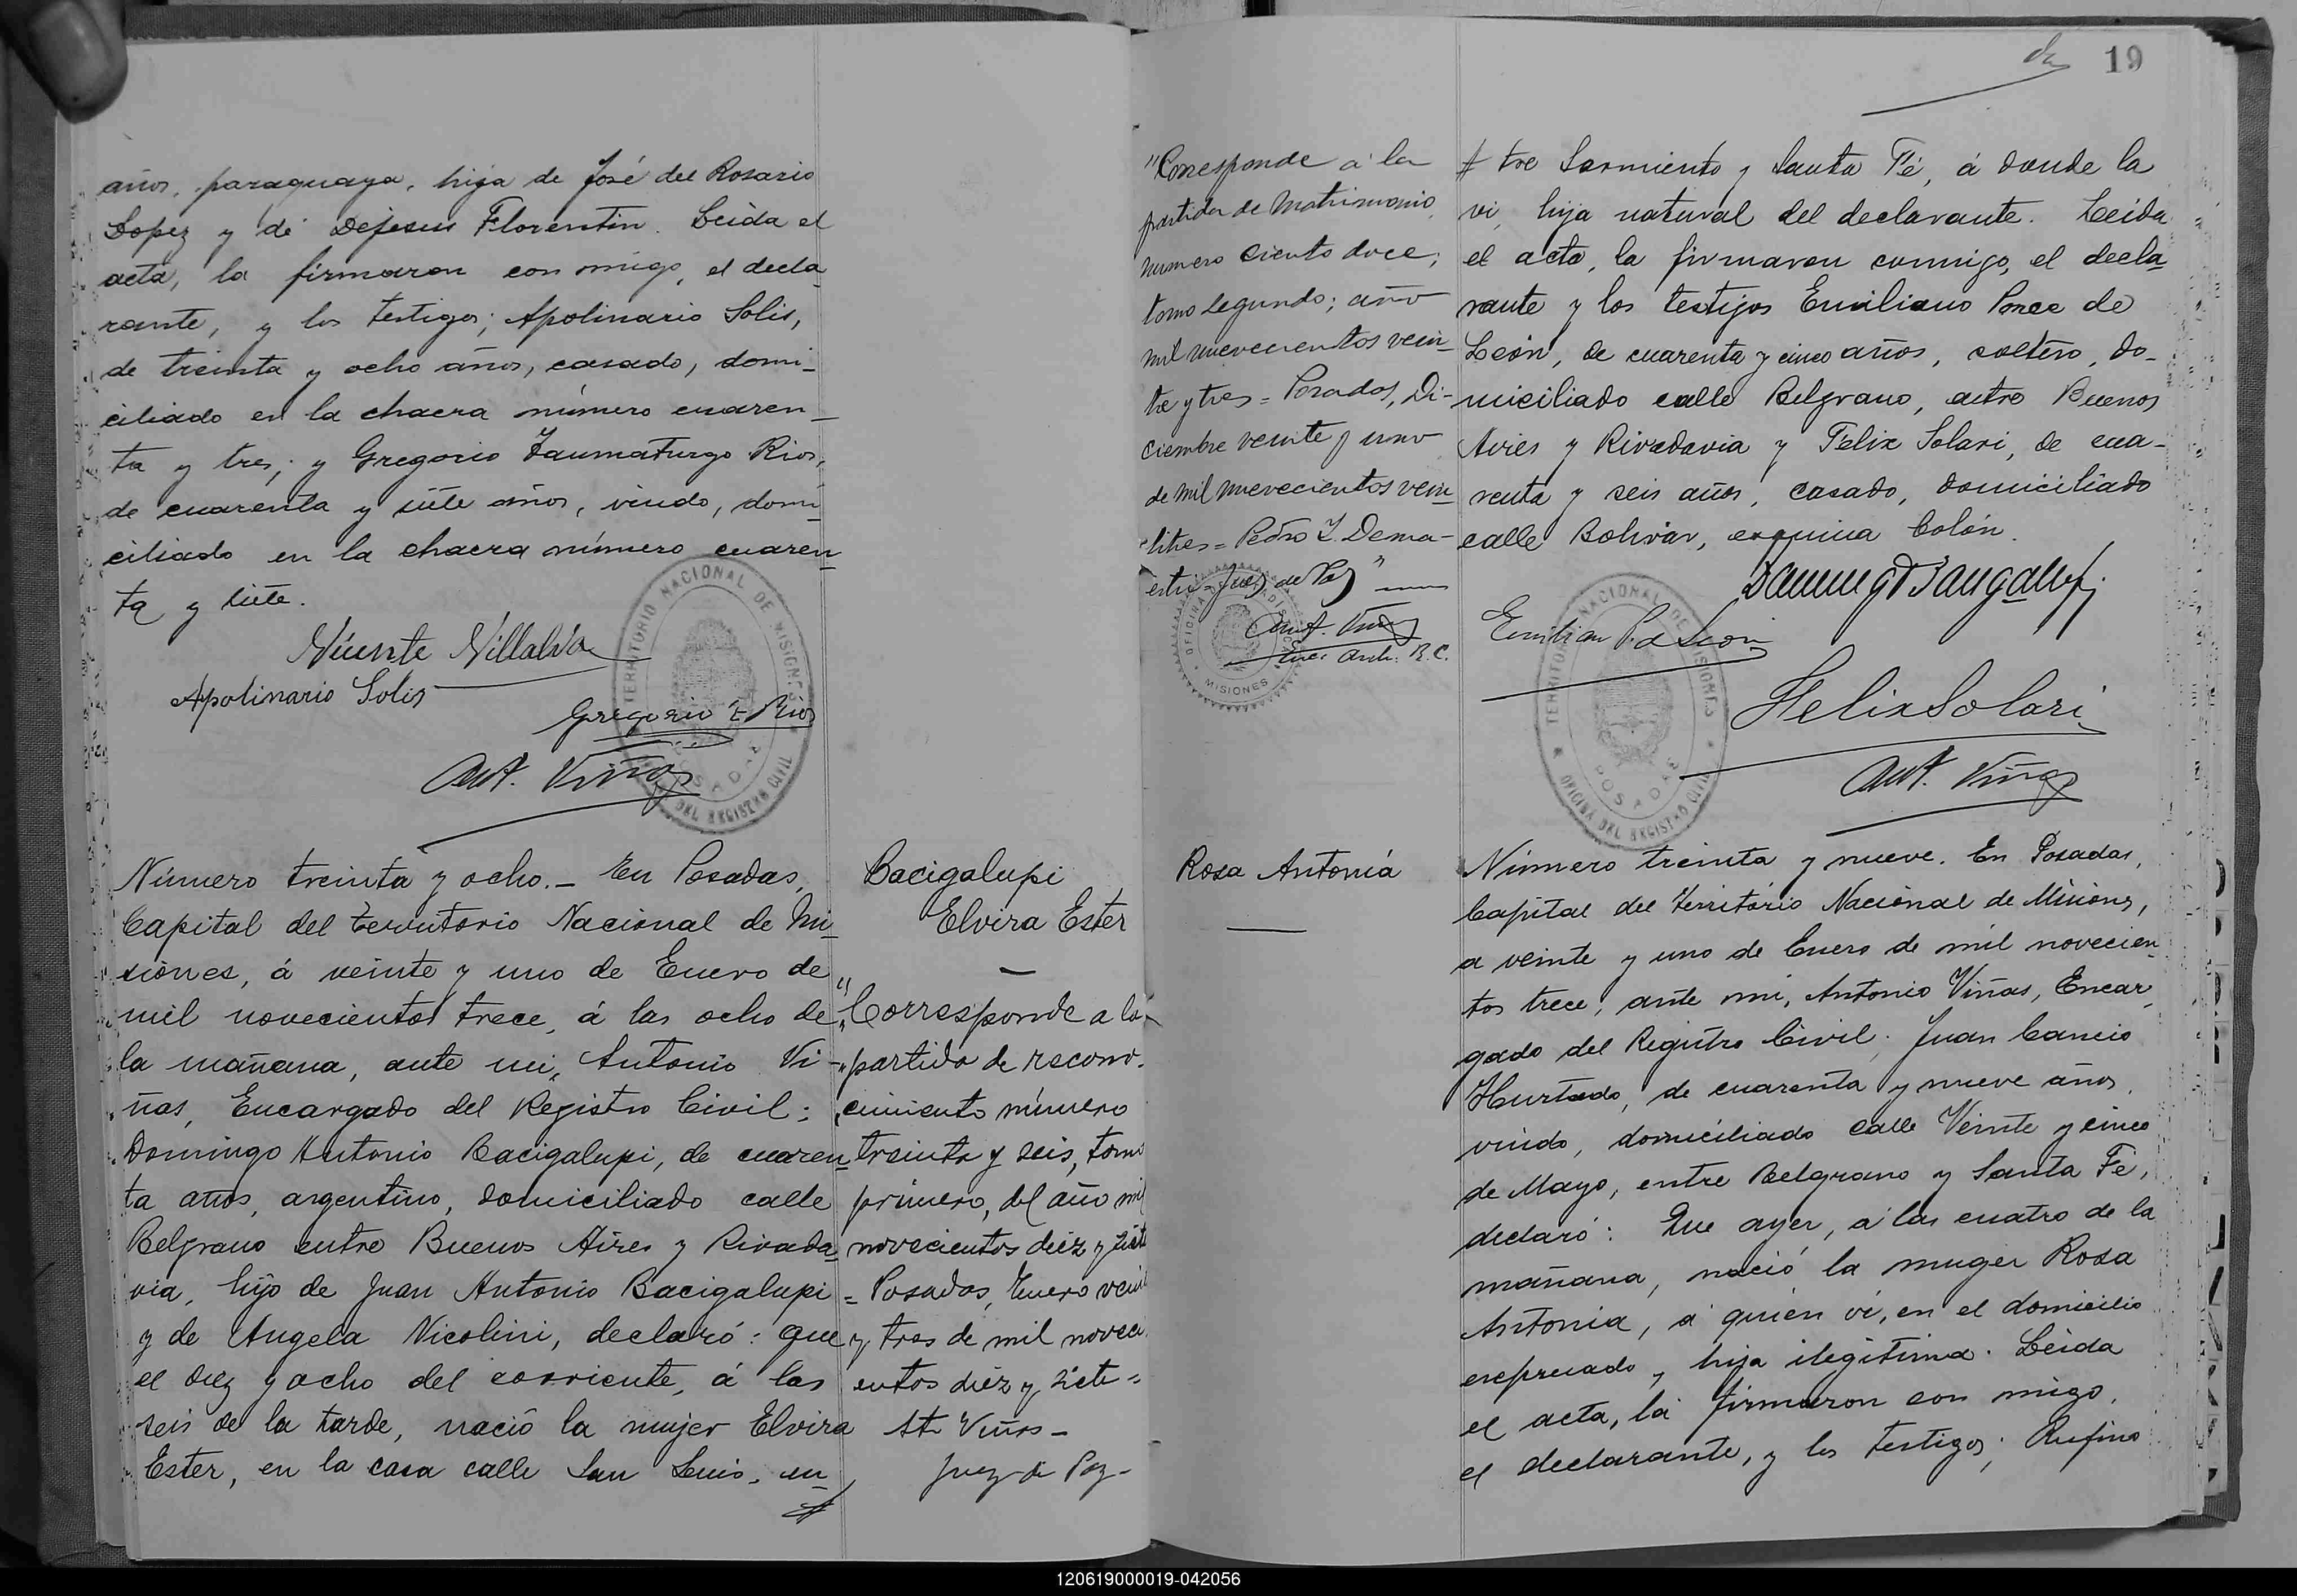 años, paraguaya, hija de José del Rosario
Lopez y de Dejesus Florentin. Leida el
acta, la firmaron con migo, el decla
rante, y los testigos; Apolinario Solis,
de treinta y ocho años, casado, domi_
ciliado en la chacra número cuaren_
ta y tres; y Gregorio Taumaturgo Rios,
de cuarenta y siete años, viudo, domi_
ciliado en la chacra número cuaren_
ta y siete.
Vicente Villalva
Apolinario Solis
Gregorio T Rios
Ant. Viñas
TERRITORIO NACIONAL DE MISIONES
POSADAS
OFICINA DEL REGISTRO CIVIL
Número treinta y ocho._ En Posadas,
Capital del territorio Nacional de Mi_
siones, á veinte y uno de Enero de
mil novecientos trece, á las ocho de
la mañana, ante mi, Antonio Vi-
ñas, Encargado del Registro Civil:
Domingo Antonio Bacigalupi, de cuaren_
ta años, argentino, domiciliado calle
Belgrano entre Buenos Aires y Rivada_
via, hijo de Juan Antonio Bacigalupi
y de Angela Nicolini, declaró: que
el diez y ocho del corriente, á las
seis de la tarde, nació la mujer Elvira
Ester, en la casa calle San Luis, en_
Bacigalupi
Elvira Ester
"Corresponde a la
"partida de recono-
cimiento número
treinta y seis, tomo
primero, del año mil
novecientos diez y siete
= Posadas, Enero veinte
y tres de mil noveci
entos diez y siete =
At Viñas -
Juez de Paz -
19
"Corresponde á la
partida de Matrimonio
numero ciento doce;
tomo segundo; año
mil nuevecientos vein-
te y tres = Posadas, Di-
ciembre veinte y uno
de mil nuevecientos vein_
titres = Pedro I. Dema-
estri = Juez de Paz"
Ant. Viñas
Enc. Arch. R.C.
MISIONES
tre Sarmiento y Santa Fé, á donde la
vi, hija natural del declarante. Leida
el acta, la firmaron conmigo, el decla_
rante y los testigos Emiliano Ponce de
León, de cuarenta y cinco años, soltero, do-
miciliado calle Belgrano, entre Buenos
Aires y Rivadavia y Felix Solari, de cua-
renta y seis años, casado, domiciliado
calle Bolivar, esquina Colón.
Emilian P. de León
Felix Solari
Ant. Viñas
TERRITORIO NACIONAL DE MISIONES
POSADAS
OFICINA DEL REGISTRO CIVIL
Rosa Antonia
Número treinta y nueve. En Posadas,
Capital del Territorio Nacional de Misiones,
a veinte y uno de Enero de mil novecien_
tos trece; ante mi, Antonio Viñas, Encar_
gado del Registro Civil; Juan Cancio
Hurtado, de cuarenta y nueve años,
viudo, domiciliado calle Veinte y cinco
de Mayo, entre Belgrano y Santa Fé,
declaró: Que ayer, a las cuatro de la
mañana, nació la muger Rosa
Antonia, a quién ví, en el domicilio
expresado, hija ilegitima. Leida
el acta, la firmaron con migo,
el declarante, y los testigos; Rufino
120619000019-042056